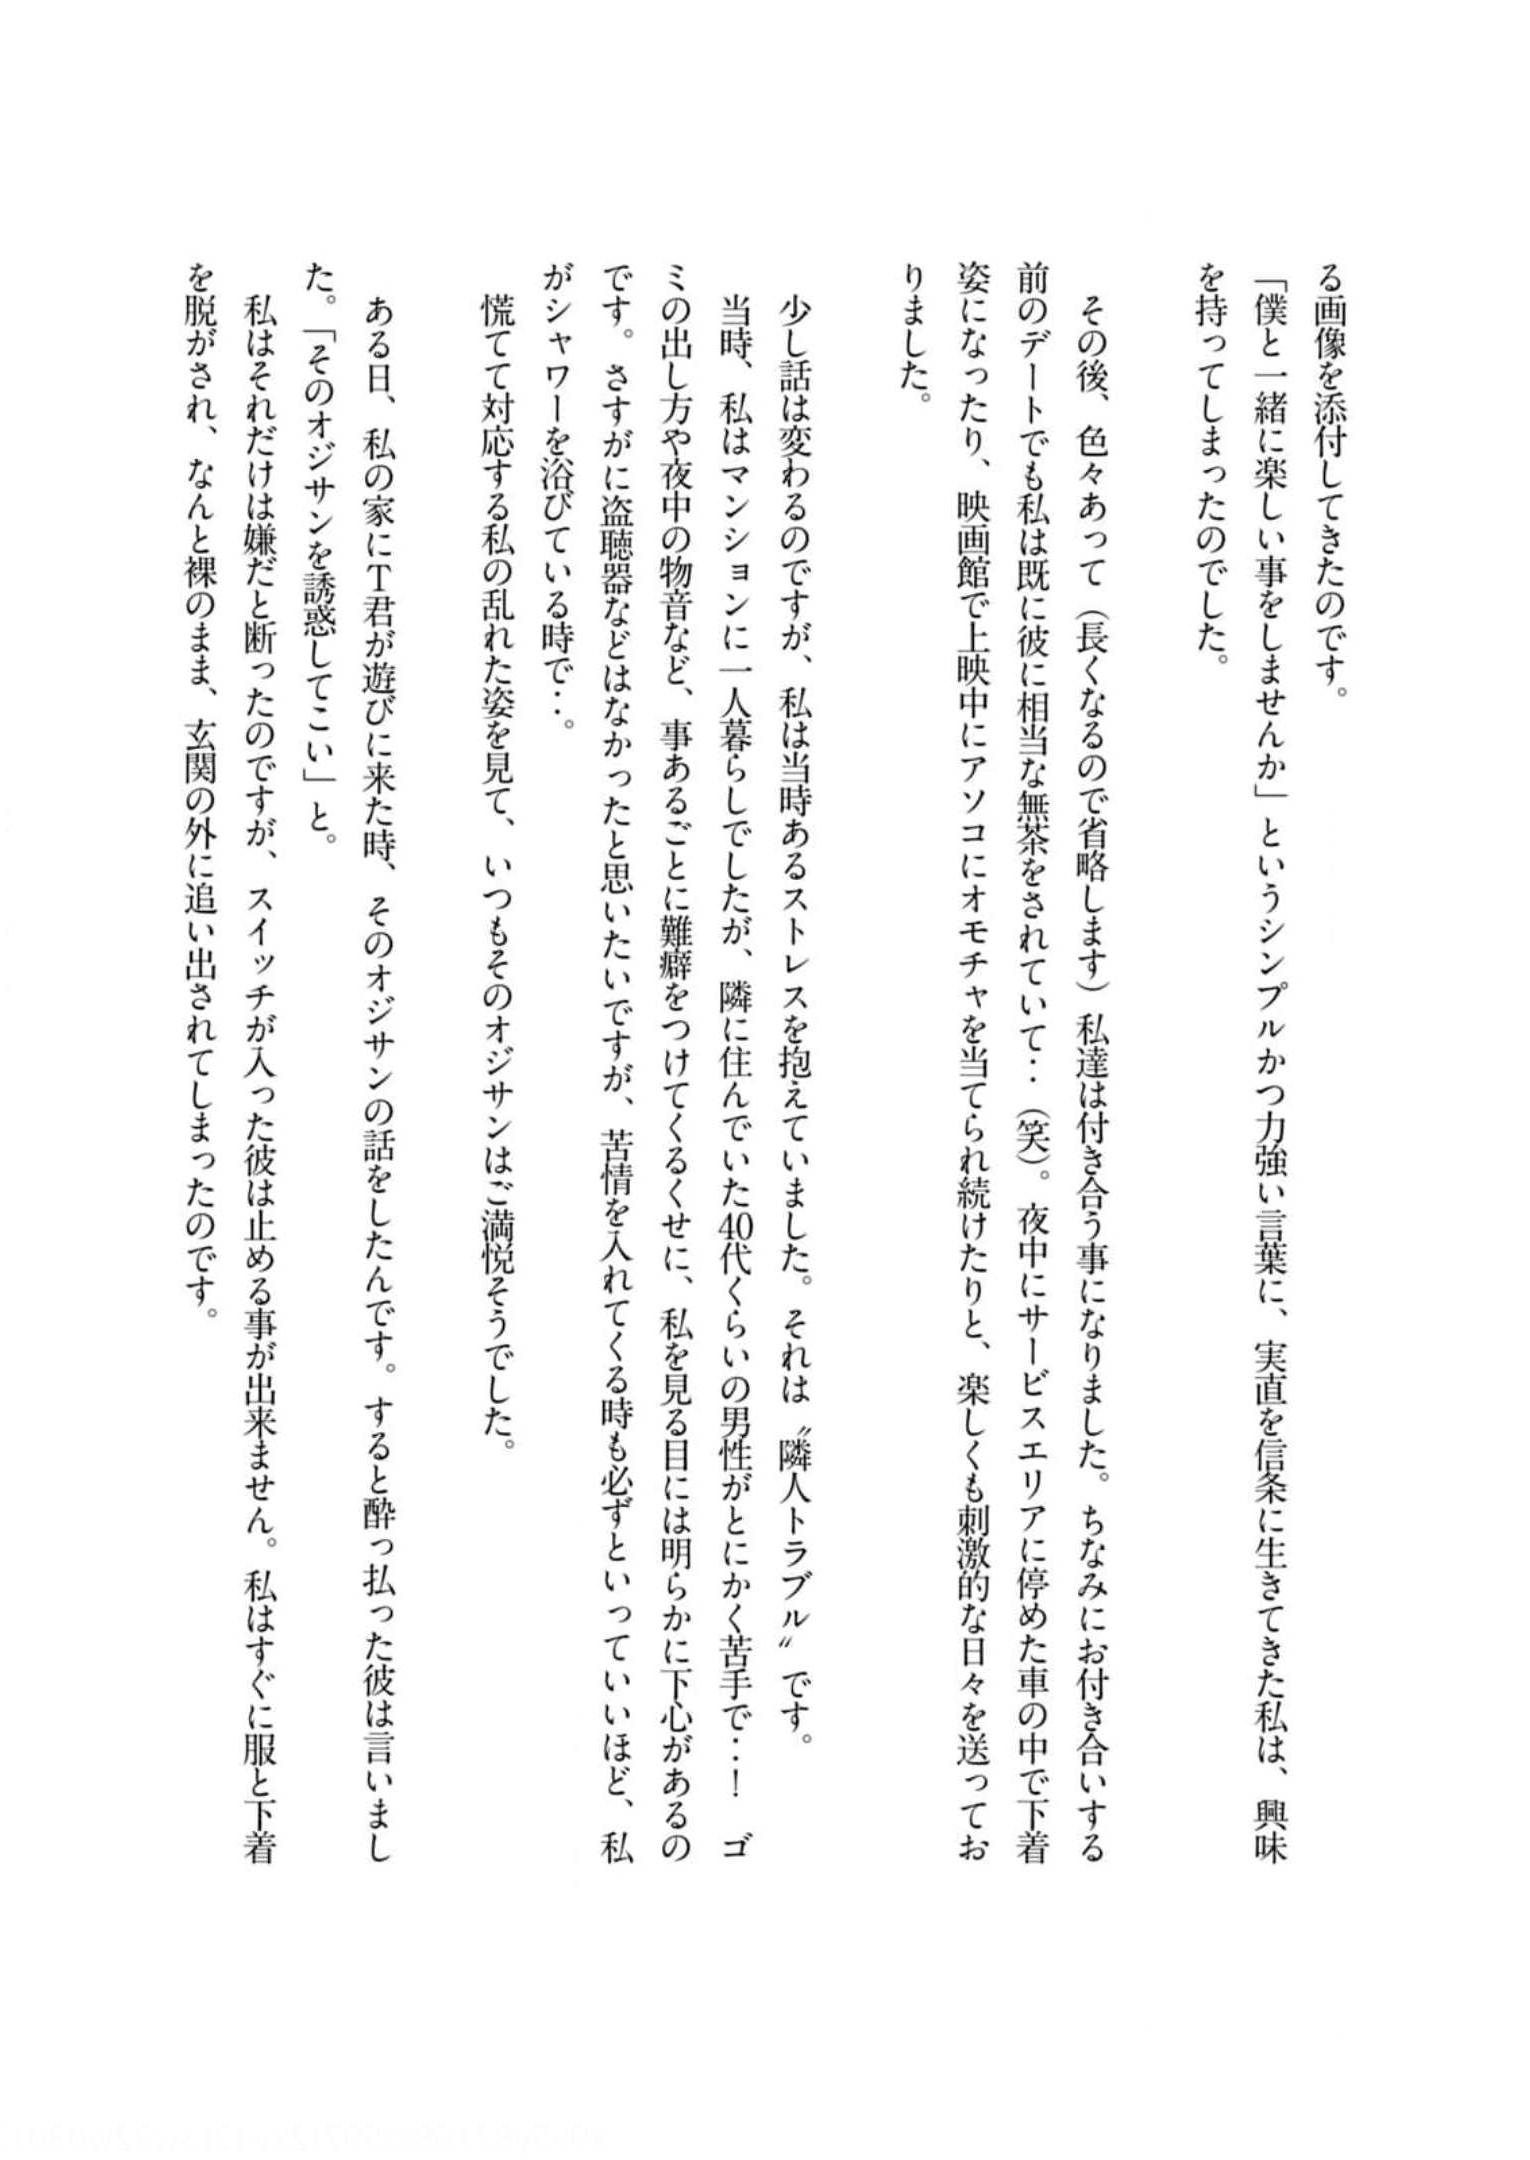 る画像を添付してきたのです。
「僕と一緒に楽しい事をしませんか」というシンプルかつ力強い言葉に、実直を信条に生きてきた私は、興味
を持ってしまったのでした。
その後、色々あって（長くなるので省略します）私達は付き合う事になりました。ちなみにお付き合いする
前のデートでも私は既に彼に相当な無茶をされていて‥（笑）。夜中にサービスエリアに停めた車の中で下着
姿になったり、映画館で上映中にアソコにオモチャを当てられ続けたりと、楽しくも刺激的な日々を送ってお
りました。
少し話は変わるのですが、私は当時あるストレスを抱えていました。それは〝隣人トラブル〟です。
当時、私はマンションに一人暮らしでしたが、隣に住んでいた40代くらいの男性がとにかく苦手で‥！　ゴ
ミの出し方や夜中の物音など、事あるごとに難癖をつけてくるくせに、私を見る目には明らかに下心があるの
です。さすがに盗聴器などはなかったと思いたいですが、苦情を入れてくる時も必ずといっていいほど、私
がシャワーを浴びている時で‥。
慌てて対応する私の乱れた姿を見て、いつもそのオジサンはご満悦そうでした。
ある日、私の家にT君が遊びに来た時、そのオジサンの話をしたんです。すると酔っ払った彼は言いまし
た。「そのオジサンを誘惑してこい」と。
私はそれだけは嫌だと断ったのですが、スイッチが入った彼は止める事が出来ません。私はすぐに服と下着
を脱がされ、なんと裸のまま、玄関の外に追い出されてしまったのです。